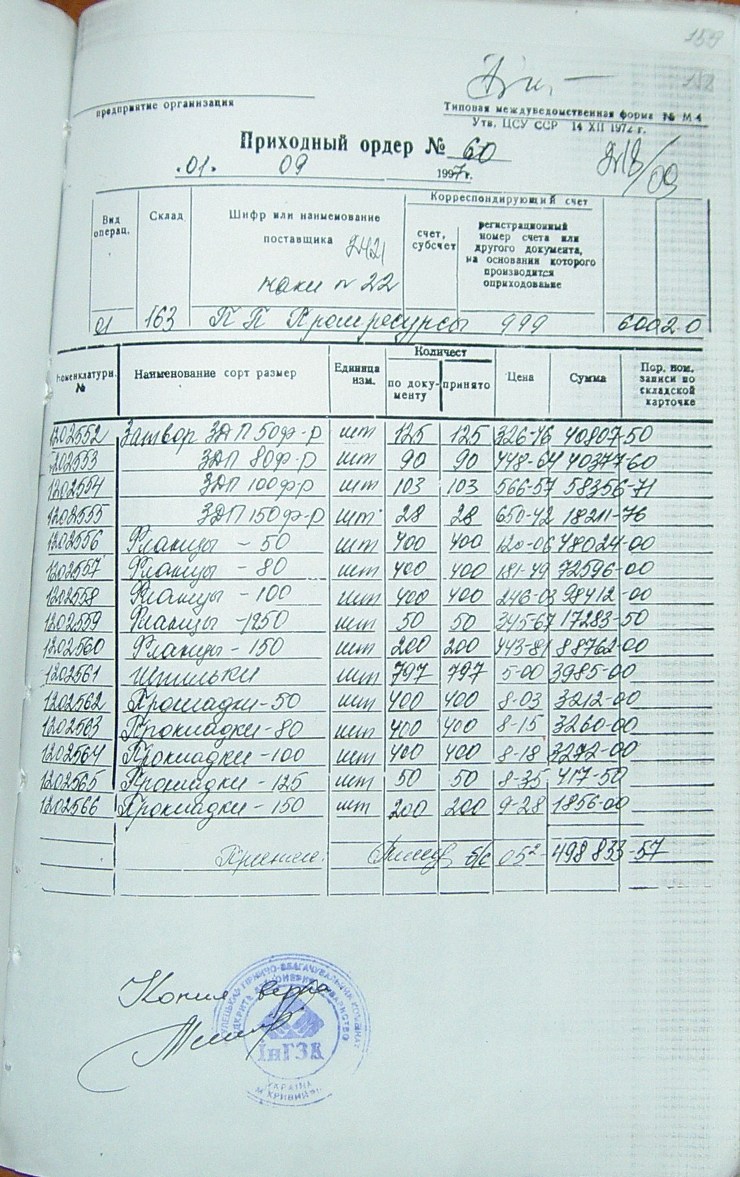 159
158
предприятие организация
Типовая междуведомственная форма № М 4
Утв. ЦСУ ССР 14 XII 1972 г.
Приходный ордер № 60
"01" 09 1997г.
Корреспондирующий счет
Вид операц. Склад Шифр или наименование поставщика счет, субсчет регистрационный номер счета или другого документа, на основании которого производится оприходование
накл № 22
01 163 ПП Промресурсы 999 6002.0
Номенклатурн. № Наименование сорт размер Единица изм. Количест по документу принято Цена Сумма Пор. ном. записи по складской карточке
1202552 Затвор ЗДП 50ф-р шт 125 125 326-46 40807-50
1202553 ЗДП 80ф-р шт 90 90 448-64 40377-60
1202554 ЗДП 100ф-р шт 103 103 566-57 58356-71
1202555 ЗДП 150ф-р шт 28 28 650-42 18211-76
1202556 Фланцы - 50 шт 400 400 120-06 48024-00
1202557 Фланцы - 80 шт 400 400 181-49 72596-00
1202558 Фланцы - 100 шт 400 400 246-03 98412-00
1202559 Фланцы - 1250 шт 50 50 345-67 17283-50
1202560 Фланцы - 150 шт 200 200 443-81 88762-00
1202561 Шпильки шт 797 797 5-00 3985-00
1202562 Прокладки - 50 шт 400 400 8-03 3212-00
1202563 Прокладки - 80 шт 400 400 8-15 3260-00
1202564 Прокладки - 100 шт 400 400 8-18 3272-00
1202565 Прокладки - 125 шт 50 50 8-35 417-50
1202566 Прокладки - 150 шт 200 200 9-28 1856-00
б/с 498833-57
Копия верна
ІнГЗК
УКРАЇНА